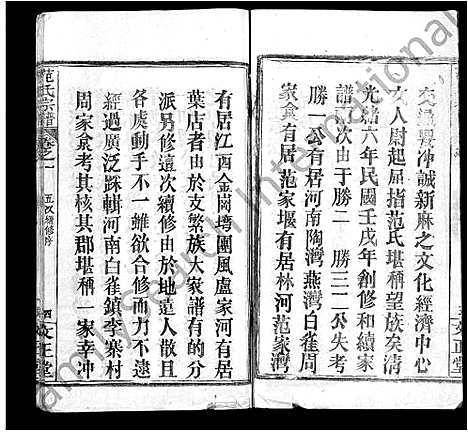 交誼要沖誠新麻之文化經濟中心
女人尉起屈指范氏堪稱望族矣清
光緒六年民國壬戌年創修和續家
譜二次由于勝二 勝三二公失考
勝一公有居河南陶灣燕灣白雀周
家侖有居范家堰有居林河范家灣
有居江西金崗塆團風盧家河有居
葉店者由於支繁族大家譜有的分
派另修這次續修由於地遠人散且
各處動手不一雖欲合修而力不逮
經過廣泛踩輯河南白雀鎮李寨村
周家侖考其核其郡堪稱一家幸冲
范氏宗譜
卷之一
五次續修序
四
文正堂
文正堂
Family Search International